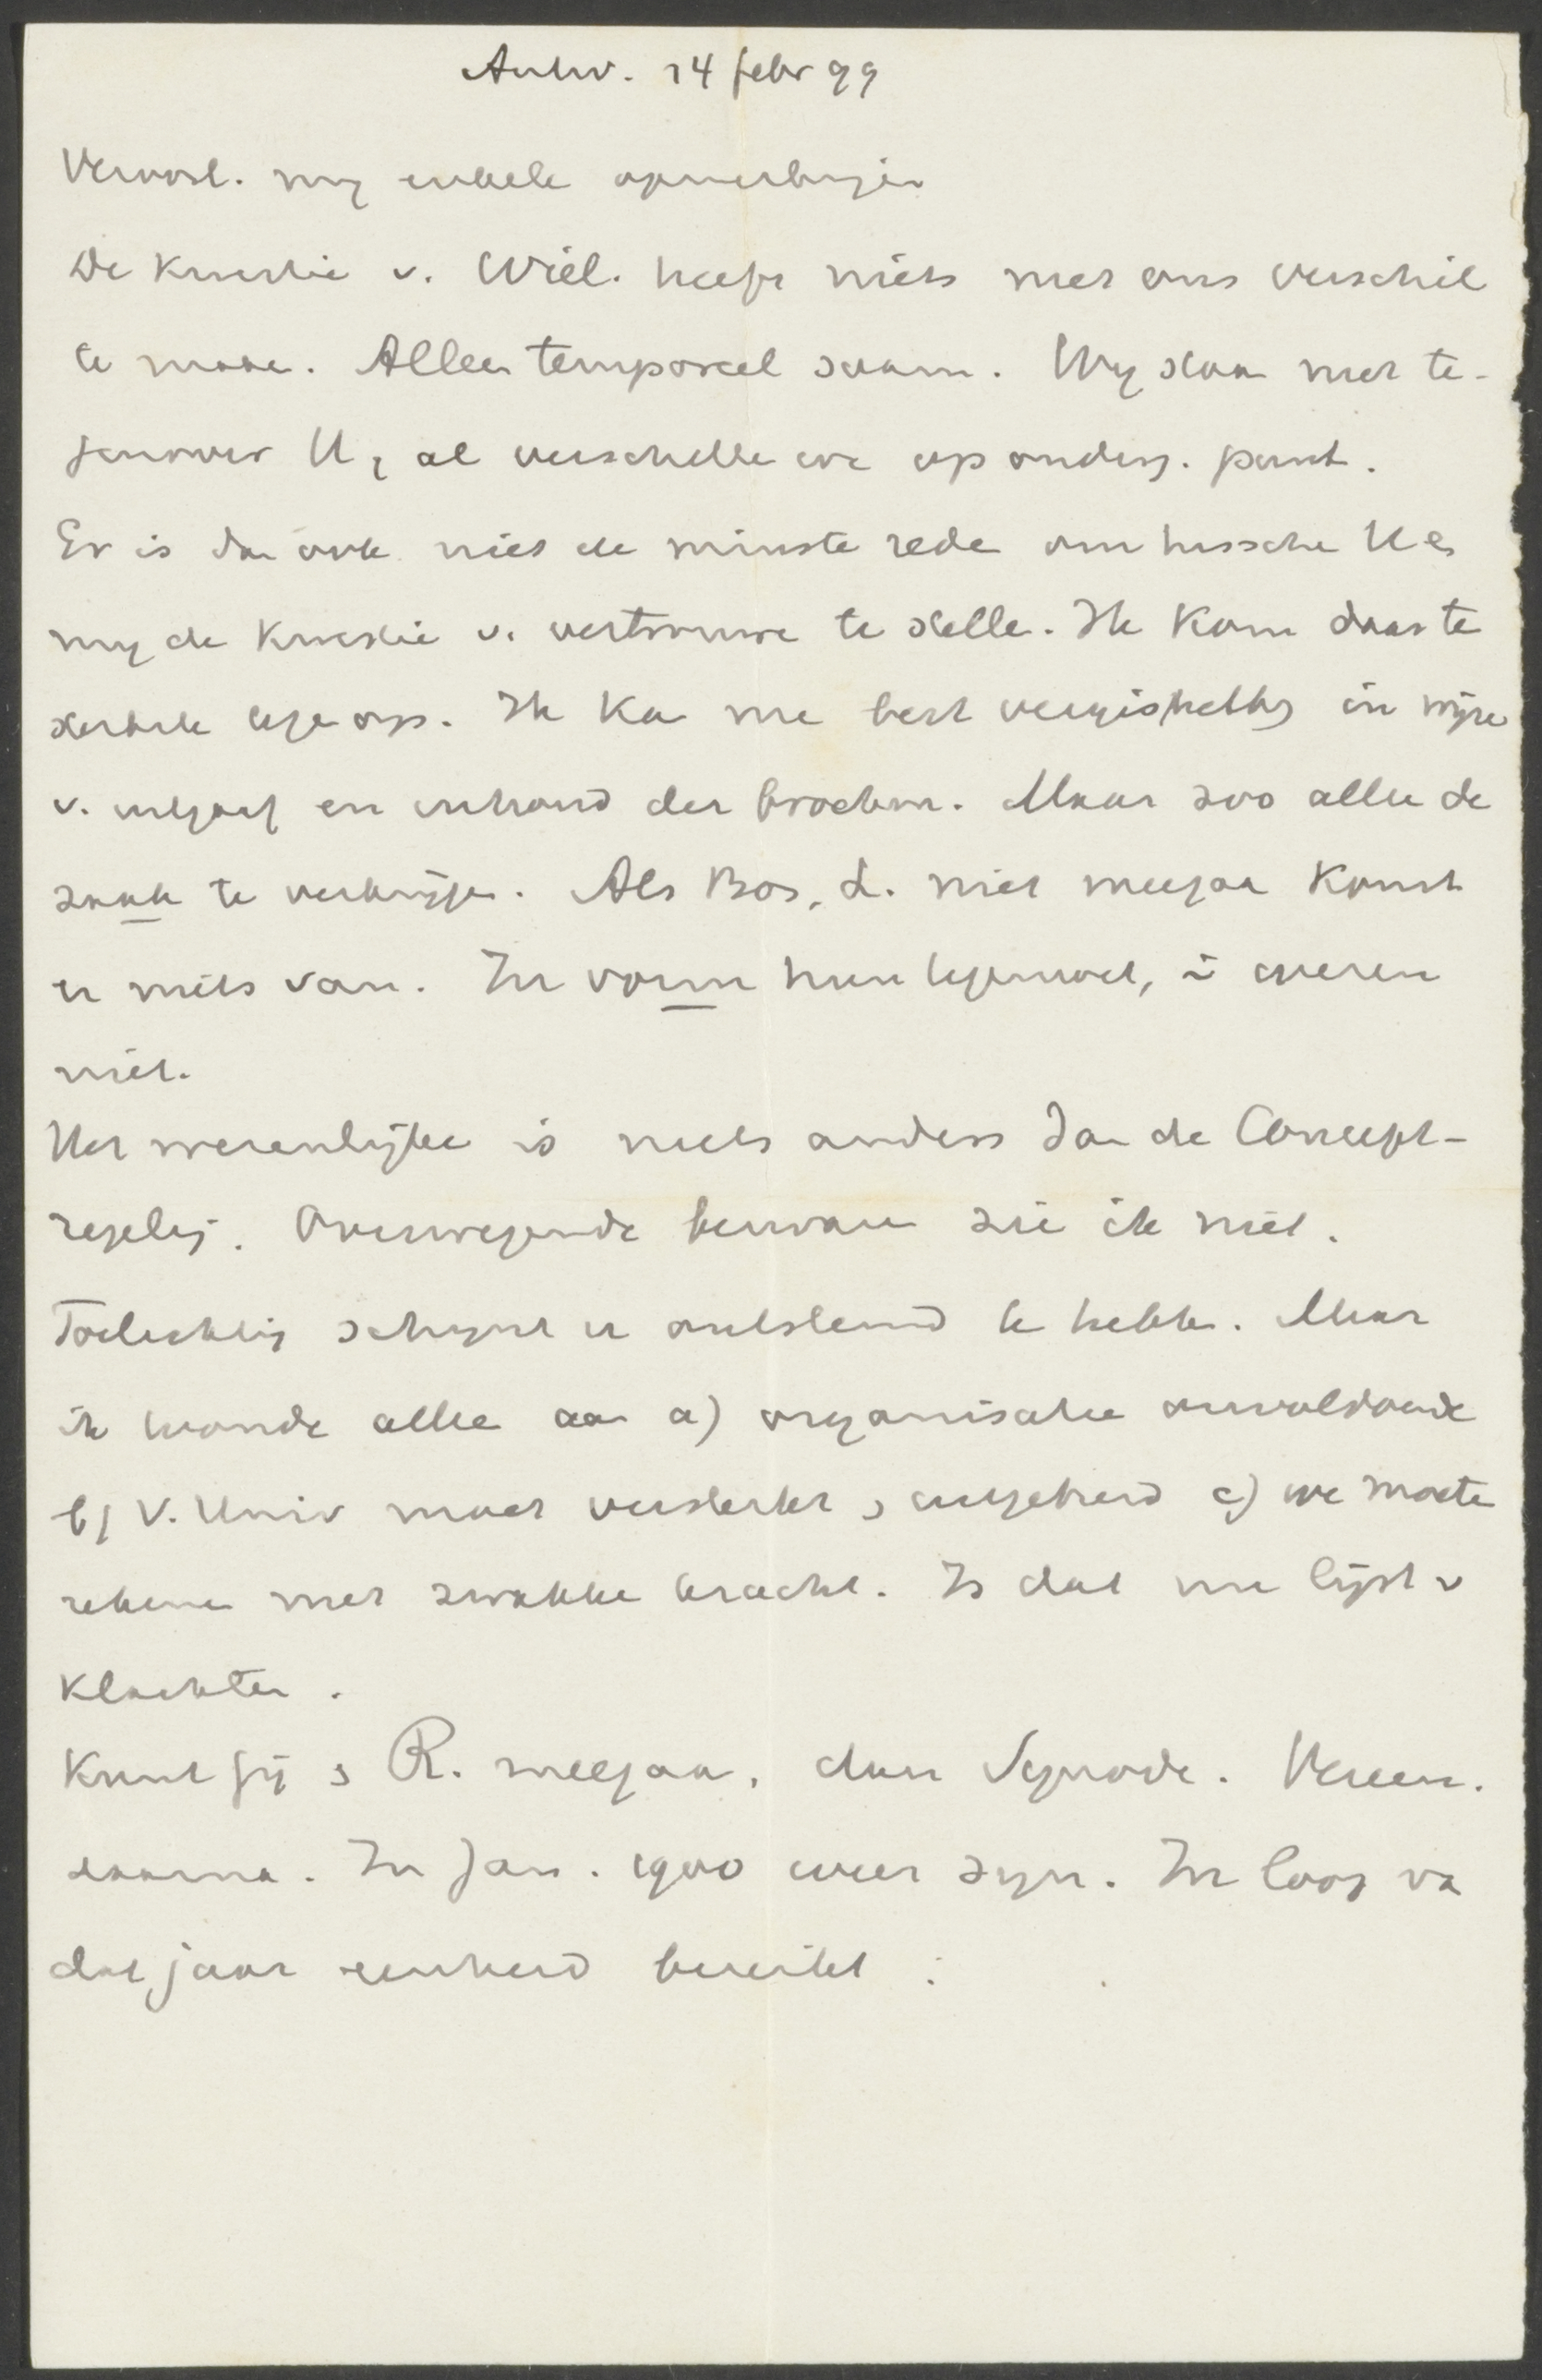 Antw. 14 febr 99
Veroorl. mij enkele opmerkingen
De kwestie v. Wiel. heeft niets met ons verschil
te make. Alleen temporeel saam. Wij staa niet te-
genover U, al verschelle we op onderg. punt.
Er is dan ook niet de minste rede om tussche U en
mij de kwestie v. vertrouwe te stelle. Ik kom daar te
sterkste tege op. Ik ka me best vergist hebb in wijze
v. uitgaaf en inhoud der brochure. Maar zoo allee de
zaak te verkrijge. Als Bos, L. niet meegaa komt
er niets van. In vorm hun tegemoet, in wezen
niet.
Het wezenlijke is niets anders dan de Concept-
regeling. Overwegende bezwaren zie ik niet.
Toelichting schijnt u ontstemd te hebbe. Maar
ik toonde allee aan a) organisatie onvoldoende
b) V. Univ moet versterkt, uitgebreid c) we moete
rekene met zwakke kracht. Is dat nu lijst v
klachten.
Kunt gij en R. meegaa, dan Synode. Vereen.
daarna. In Jan. 1900 weer syn. In loop va
dat jaar eenheid bereikt.